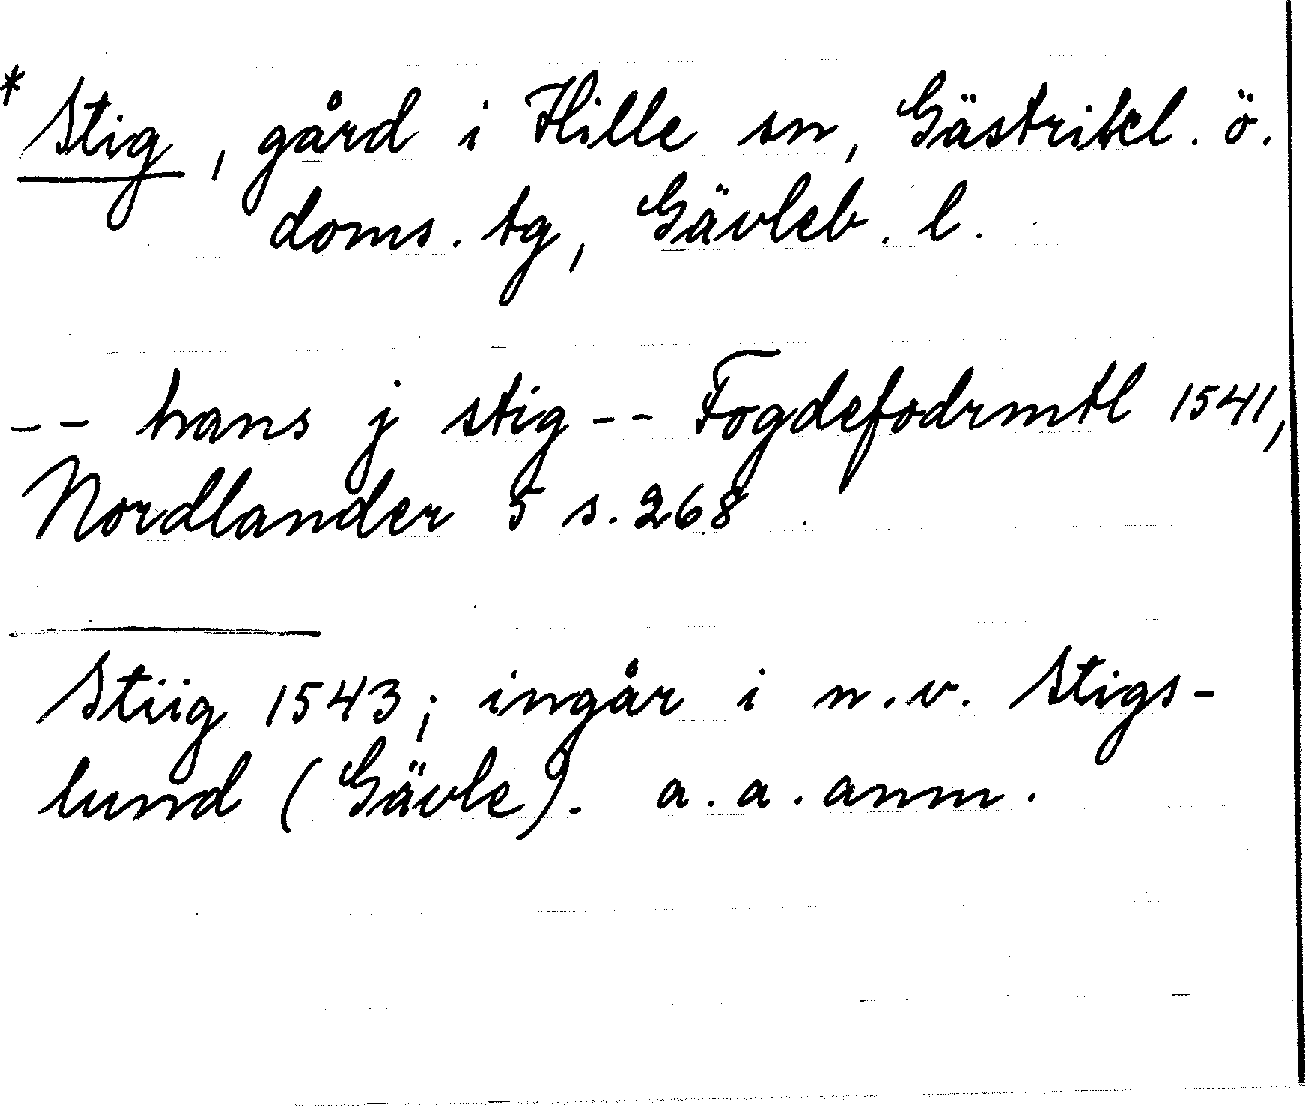 * Stig, gård i Hille sn, Gästrikl. ö.
doms. tg, Gävleb. l.
-- hans j stig -- Fogdefodrmtl 1541,
Nordlander 5 s. 268
Stiig 1543; ingår i n.v. Stigs-
lund (Gävle). a.a. anm.